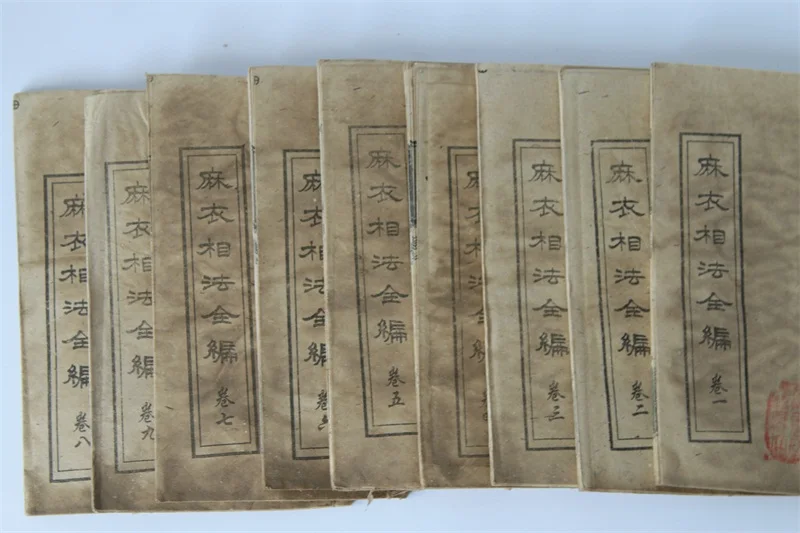 麻衣相法全編 卷一
麻衣相法全編 卷二
麻衣相法全編 卷三
麻衣相法全編 卷五
麻衣相法全編 卷
麻衣相法全編 卷七
麻衣相法全編 卷九
麻衣相法全編 卷八